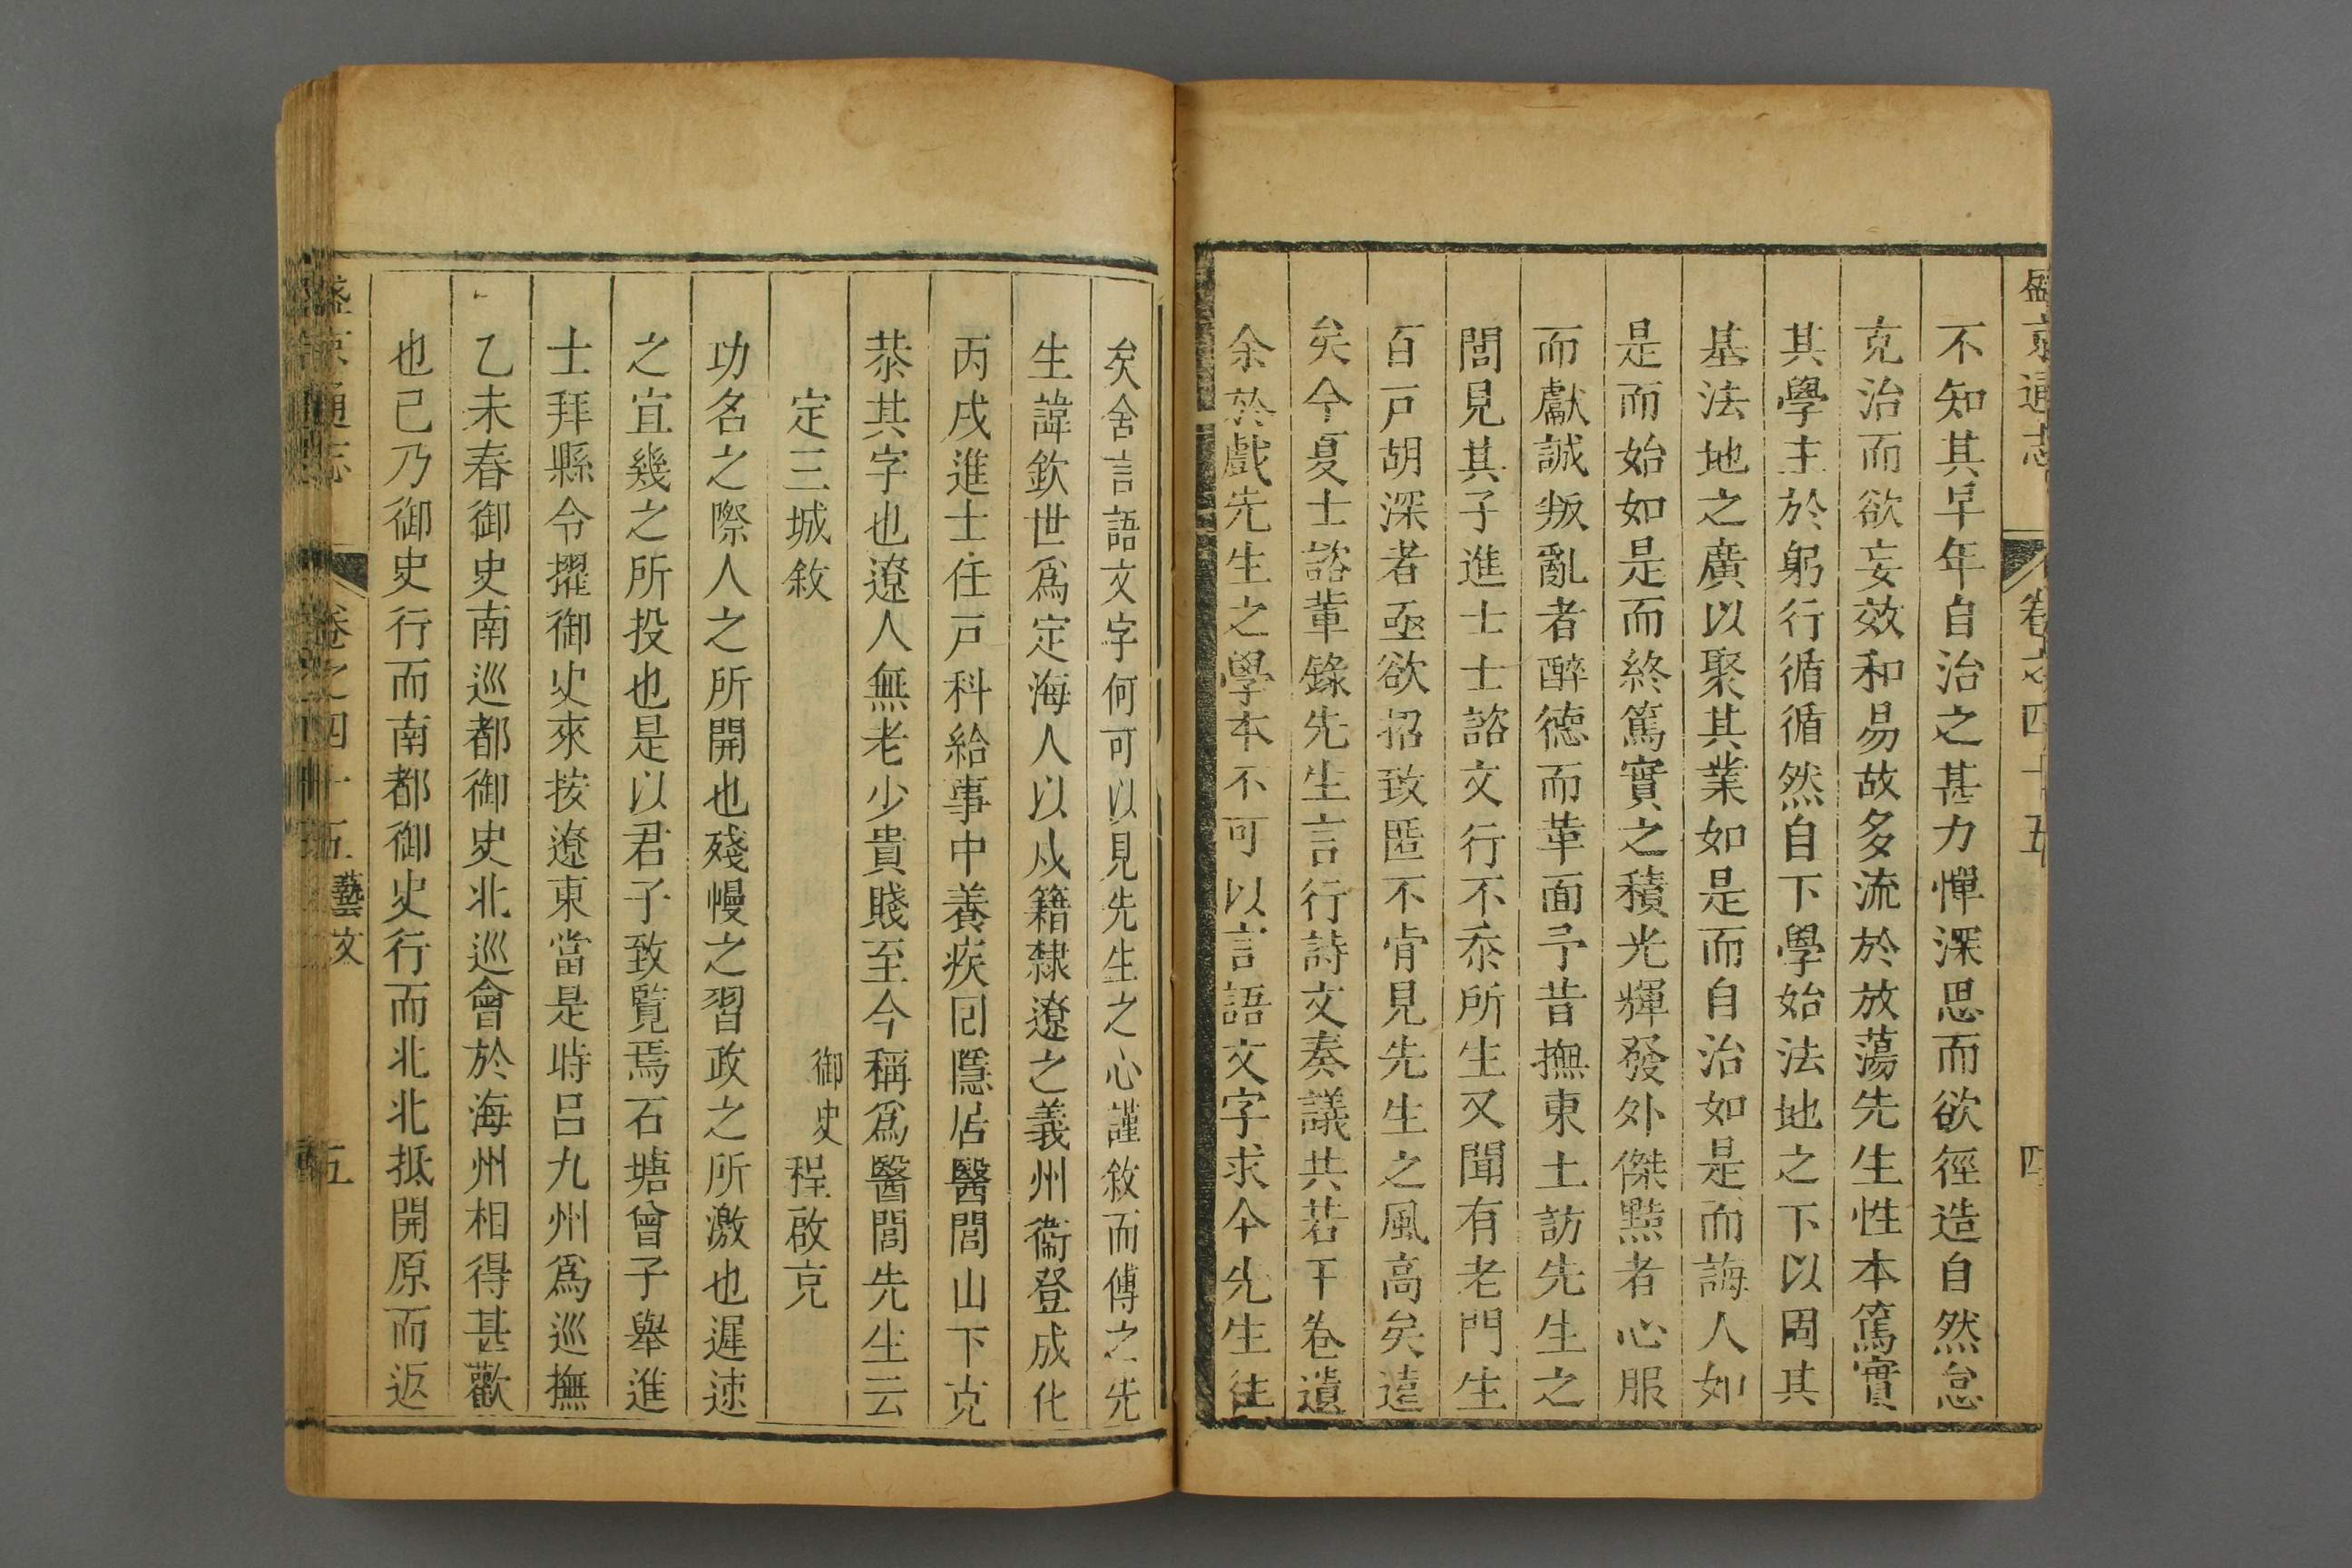 盛京通志 卷之四十五 四
不知其早年自治之甚力憚深思而欲徑造自然怠
克治而欲妄效和易故多流於放蕩先生性本篤實
其學主於躬行循循然自下學始法地之下以固其
基法地之廣以聚其業如是而自治如是而誨人如
是而始如是而終篤實之積光輝發外傑黠者心服
而獻誠叛亂者醉德而革面予昔撫東土訪先生之
閭見其子進士士諮文行不忝所生又聞有老門生
百戸胡深者亟欲招致匿不肯見先生之風高矣遠
矣今夏士諮輩錄先生言行詩文奏議共若干卷遺
余於戲先生之學本不可以言語文字求今先生往
矣舍言語文字何可以見先生之心謹敘而傅之先
生諱欽世爲定海人以戍籍隸遼之義州衞登成化
丙戌進士任戸科給事中養疾囘隱居醫閭山下克
恭其字也遼人無老少貴賤至今稱爲醫閭先生云
定三城敘 御史程啟充
功名之際人之所開也殘慢之習政之所激也遲速
之宜幾之所投也是以君子致覽焉石塘曾子舉進
士拜縣令擢御史來按遼東當是時呂九州爲巡撫
乙未春御史南巡都御史北巡會於海州相得甚歡
也已乃御史行而南都御史行而北北抵開原而返
盛京通志 卷之四十五 藝文 五